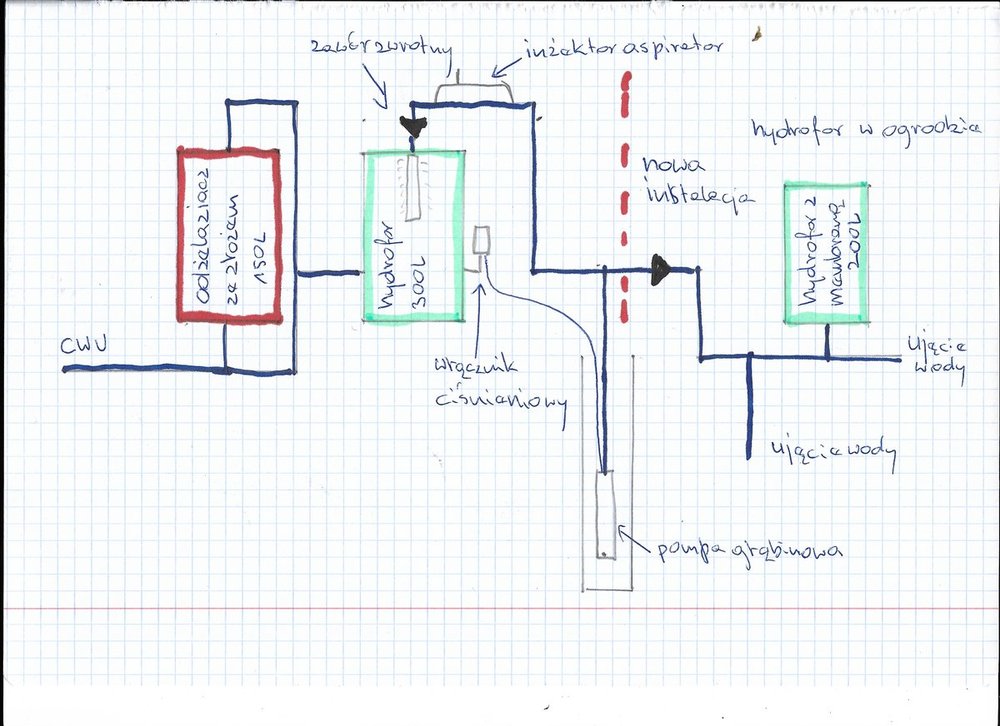 zawór zwrotny
inżektor aspirator
hydrofor w ogrodzia
nowa
instalacja
odżelaziacz
ze złożem
150L
hydrofor
300L
hydrofor z
membraną
200L
CWU
włącznik
ciśnianiowy
ujęcie
wody
ujęcie wody
pompa głębinowa